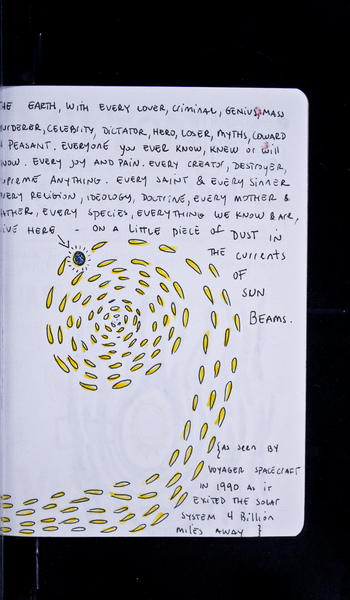 THE EARTH, WITH EVERY LOVER, CRIMINAL, GENIUS, MASS
MURDERER, CELEBRITY, DICTATOR, HERO, LOSER, MYTHS, COWARD
PEASANT. EVERYONE YOU EVER KNOW, KNEW OR WILL
KNOW. EVERY JOY AND PAIN. EVERY CREATOR, DESTROYER,
SUPREME ANYTHING. EVERY SAINT & EVERY SINNER
EVERY RELIGION, IDEOLOGY, DOCTRINE, EVERY MOTHER &
FATHER, EVERY SPECIES, EVERYTHING WE KNOW & ARE,
LIVE HERE - ON A LITTLE PIECE OF DUST IN
THE CURRENTS
OF
SUN
BEAMS.
{AS SEEN BY
VOYAGER SPACECRAFT
IN 1990 AS IT
EXITED THE SOLAR
SYSTEM 4 BILLION
MILES AWAY }